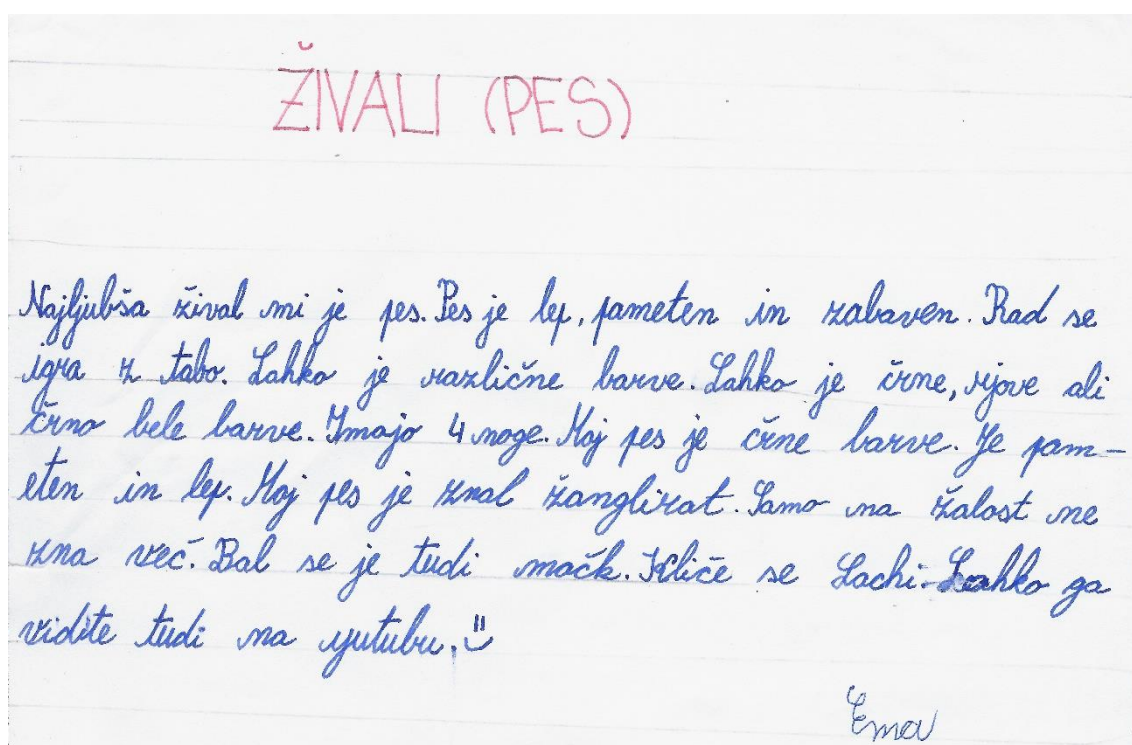 ŽIVALI (PES)
Najljubša žival mi je pes. Pes je lep, pameten in zabaven. Rad se
igra z tabo. Lahko je različne barve. Lahko je črne, rjove ali
črno bele barve. Imajo 4 noge. Moj pes je črne barve. Je pam-
eten in lep. Moj pes je znal žanglirat. Samo na žalost ne
zna več. Bal se je tudi mačk. Kliče se Lachi. Lahko ga
vidite tudi na yutubu. ü
Ema